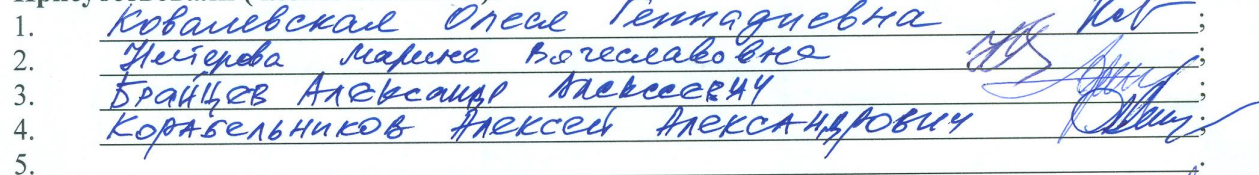 Присутствовали (
1. Ковалевская Олеся Геннадиевна ;
2. Марина Вячеславовна ;
3. Брайцев Александр Алексеевич ;
4. Корабельников Алексей Александрович ;
5.